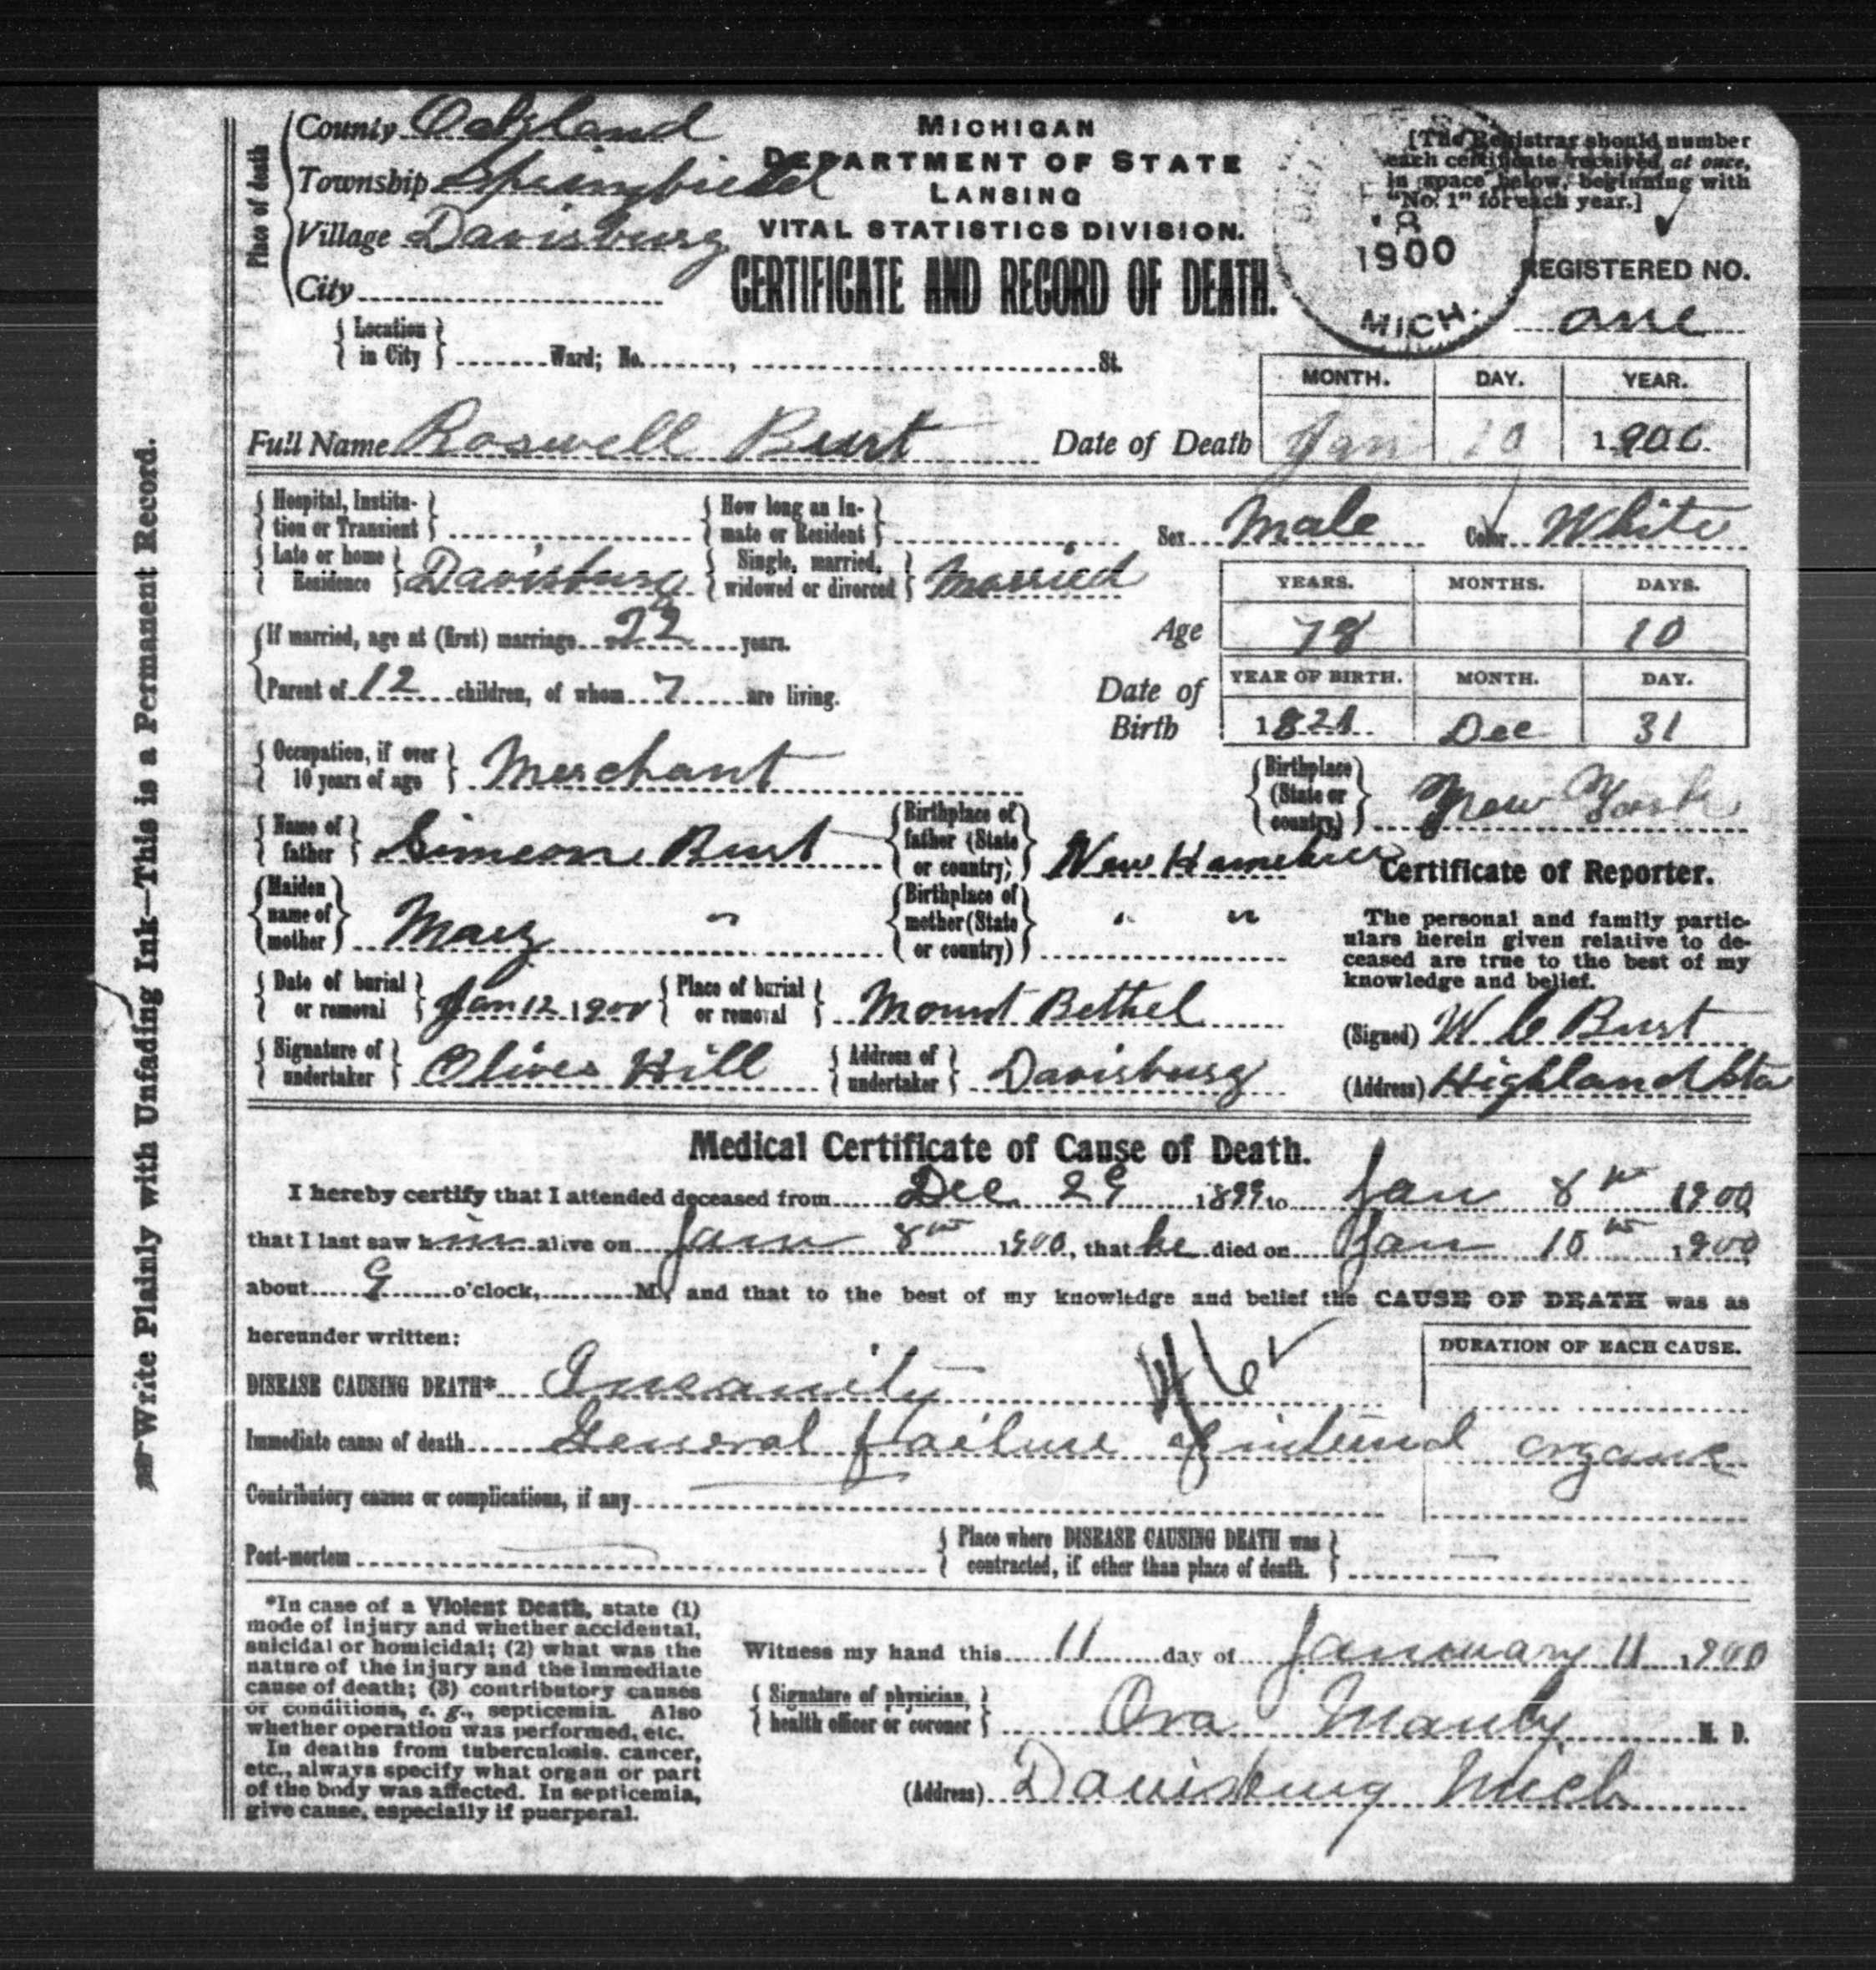 County Oakland
Township Springfield
Village Davisburg
City
Place of death
MICHIGAN
DEPARTMENT OF STATE
LANSING
VITAL STATISTICS DIVISION.
CERTIFICATE AND RECORD OF DEATH.
1900
MICH.
[The Registrar should number
each certificate received at once,
in space below, beginning with
"No. 1" for each year.]
REGISTERED NO.
one
Location in City Ward; No. , St.
MONTH. DAY. YEAR.
Full Name Roswell Burt Date of Death Jan 10 1900.
Hospital, Institution or Transient How long an Inmate or Resident Sex Male Color White
Late or home Residence Davisburg Single, married, widowed or divorced Married
YEARS. MONTHS. DAYS.
If married, age at (first) marriage 22 years. Age 78 10
Parent of 12 children, of whom 7 are living.
YEAR OF BIRTH. MONTH. DAY.
Date of Birth 1821 Dec 31
Occupation, if over 10 years of age Merchant
Birthplace (State or country) New York
Name of father Simeon Burt Birthplace of father (State or country) New Hamshire
Maiden name of mother Mary " Birthplace of mother (State or country) " "
Date of burial or removal Jan 12 1900 Place of burial or removal Mount Bethel
Signature of undertaker Oliver Hill Address of undertaker Davisburg
Certificate of Reporter.
The personal and family partic-
ulars herein given relative to de-
ceased are true to the best of my
knowledge and belief.
(Signed) W C Burt
(Address) Highland Sta
Medical Certificate of Cause of Death.
I hereby certify that I attended deceased from Dec 29 1899 to Jan 8th 1900
that I last saw him alive on Jan 8th 1900, that he died on Jan 10th 1900
about 9 o'clock, M., and that to the best of my knowledge and belief the CAUSE OF DEATH was as
hereunder written:
DURATION OF EACH CAUSE.
DISEASE CAUSING DEATH* Insanity 46
Immediate cause of death General failure of internal organs
Contributory causes or complications, if any
Post-mortem Place where DISEASE CAUSING DEATH was contracted, if other than place of death.
*In case of a Violent Death, state (1)
mode of injury and whether accidental,
suicidal or homicidal; (2) what was the
nature of the injury and the immediate
cause of death; (3) contributory causes
or conditions, e. g., septicemia. Also
whether operation was performed, etc.
In deaths from tuberculosis. cancer,
etc., always specify what organ or part
of the body was affected. In septicemia,
give cause, especially if puerperal.
Witness my hand this 11 day of January 11 1900
Signature of physician, health officer or coroner Ora Manly M. D.
(Address) Davisburg Mich
Write Plainly with Unfading Ink—This is a Permanent Record.